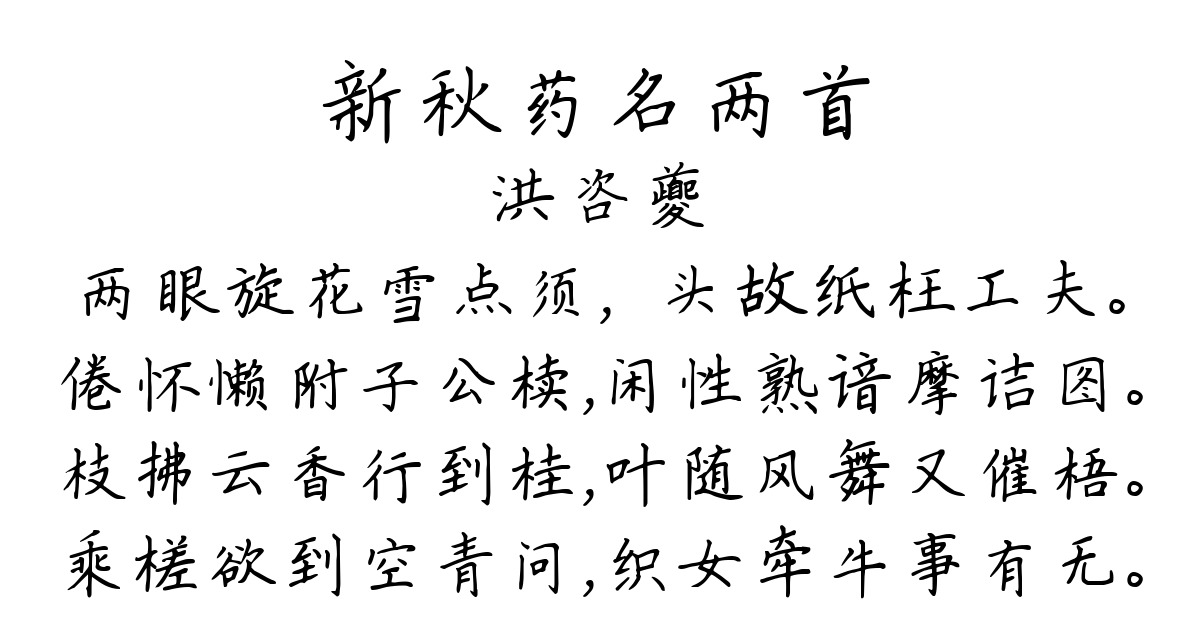 新秋药名两首
洪咨夔
两眼旋花雪点须，头故纸枉工夫。
倦怀懒附子公椟,闲性熟谙摩诘图。
枝拂云香行到桂,叶随风舞又催梧。
乘槎欲到空青问,织女牵牛事有无。